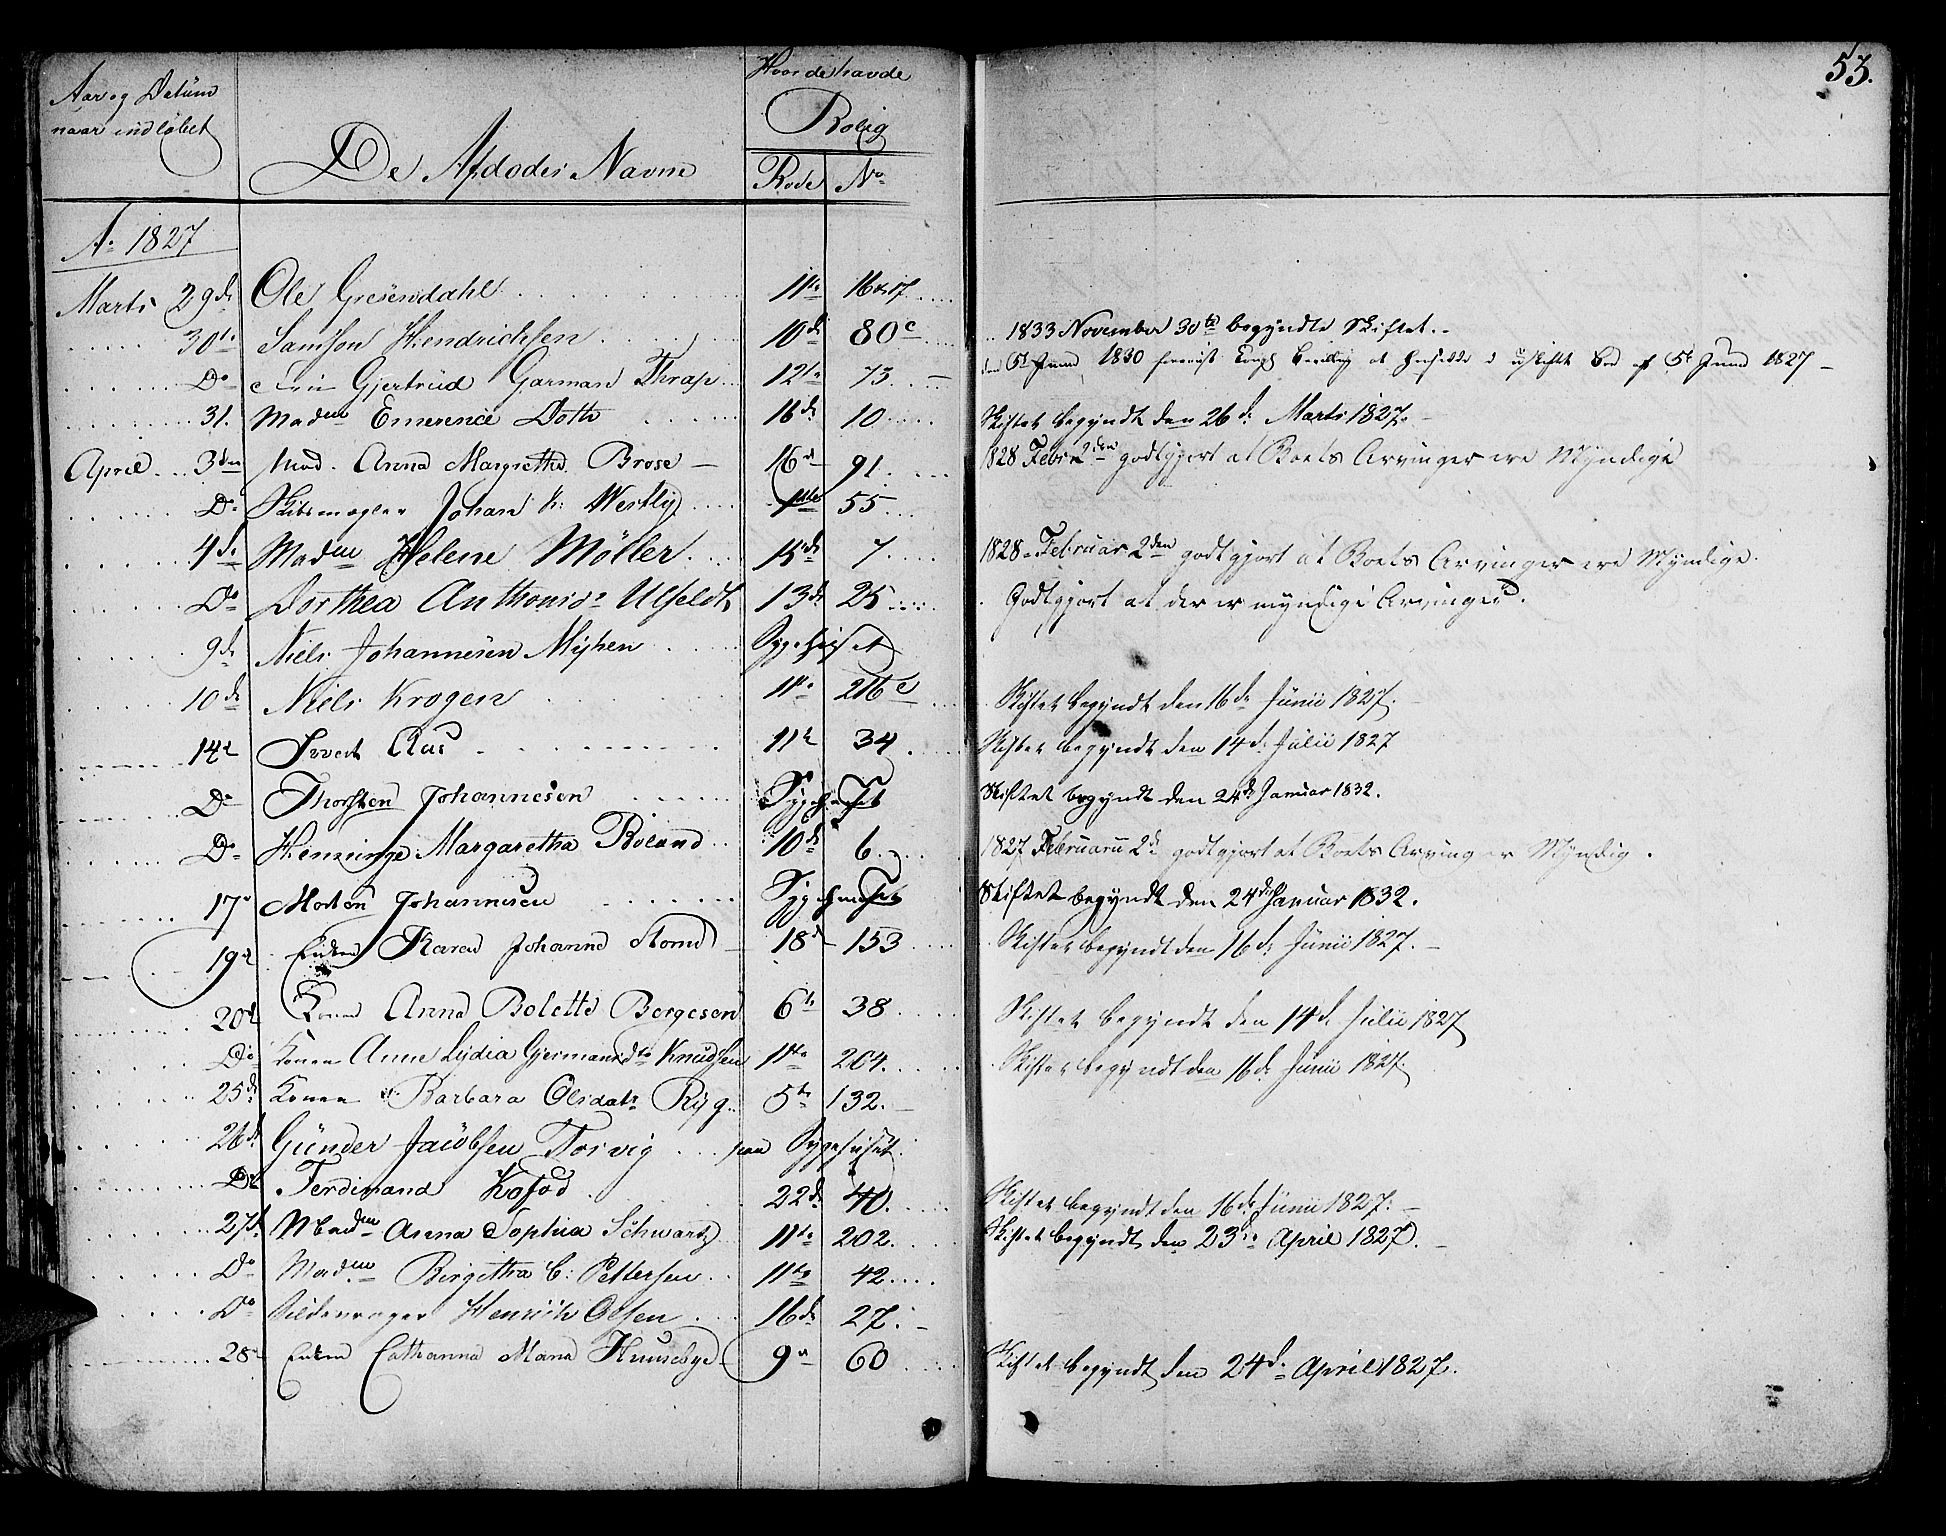 53.
Aar og Datum
naar indløbet
De Afdødes Navne
Hvor de havde
Bolig
Rode No
Ao 1827
Marts 29de Ole Gresendahl 11te 16 & 17
30te Samson Hendrichsen 10de 80c 1833 November 30te begyndte Skiftet.
Do Gjertrud Garman Thrap 12te 73 5t Juni 1830 at af 5t Juni 1827
31. Madme Emerence Doth 16de 10 Skiftet begyndt den 26de Marts 1827.
April 3den Mad. Anna Margrethe Brose 16de 91. 1828 Febr. 2den godtgjort at Boets Arvinger ere Myndige
Do Skibsmægler Johan H: Westly 55
4de Madme Helene Möller 15de 7. 1828 Februar 2den godtgjort at Boets Arvinger ere Myndige.
Do Dorthea Anthonisd. Ulfeldt 13de 25 Godtgjort at der er myndige Arvinger.
9de Niels Johannesen Myhen Sygehuset
10de Niels Krogen 11te 216c Skiftet begyndt den 16de Junii 1827.
14de Aas 11te 34 Skiftet begyndt den 14de Julii 1827
Do Thorsten Johannesen Sygehuset Skiftet begyndt den 24de Januar 1832.
Do Henninge Margaretha Boland 10de 6 1827 Februarii 2de godtgjort at Boets Arvinger er Myndig.
17e Morten Johannesen Sygehuset Skiftet begyndt den 24de Januar 1832.
19de Enken Karen Johanne Stomd 18de 153 Skiftet begyndt den 16de Junii 1827.
20de Konen Anna Bolette Borgesen 6te 38 Skiftet begyndt den 14de Julii 1827
Do Konen Anne Lydia Gjermundsdtr Knudsen 11te 204. Skiftet begyndt den 16de Junii 1827.
25de Konen Barbara Olsdatr Ryg 5te 132.
26de Gunder Jacobsen Torvig paa Sygehuset.
Do Ferdinand Kofod 22de 40. Skiftet begyndt den 16de Junii 1827.
27de Madme Anna Sophia Schwartz 11te 202. Skiftet begyndt den 23de April 1827.
Do Madme Birgitha C: Pettersen 11te 42
Do Sildevrager Henrich Olsen 16de 27.
28de Enken Cathanna Maria Huusebye 9de 60 Skiftet begyndt den 24de April 1827.